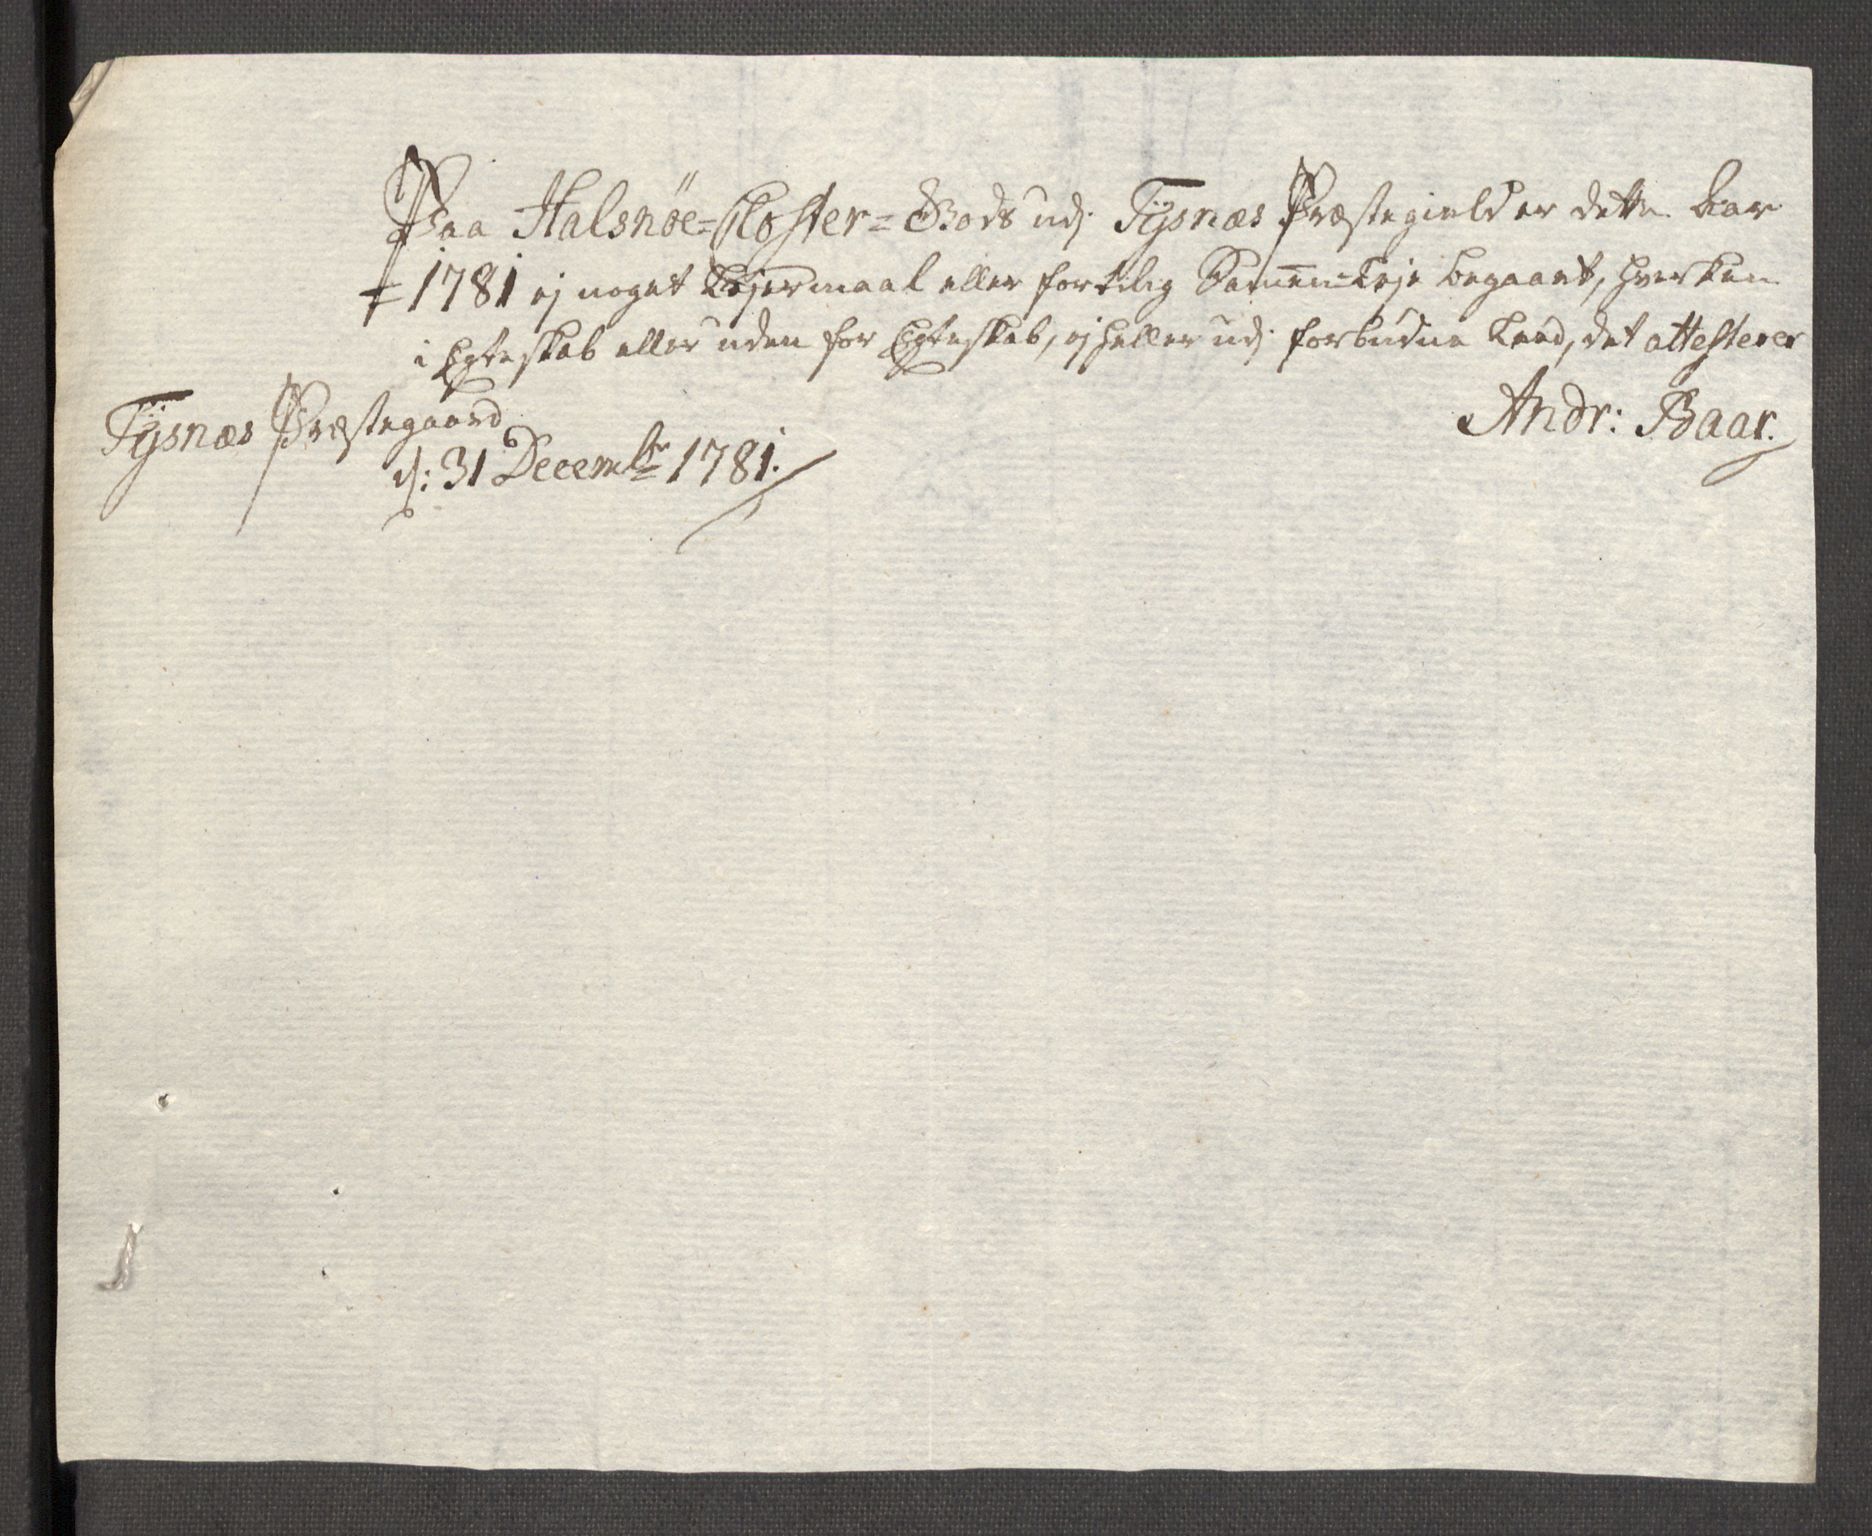 Paa Halsnöe-Closter-Gods udj Tÿsnæs Præstegield er dette Aar
1781 ej noget Lejermaal eller fortilig Sammen-Leje begaaet, hverken
i Egteskab eller uden for Egteskab, ej heller udj forbudne Leed, det attesterer
Andr: Baar.
Tÿsnæs Præstegaard
d: 31 Decembr 1781.